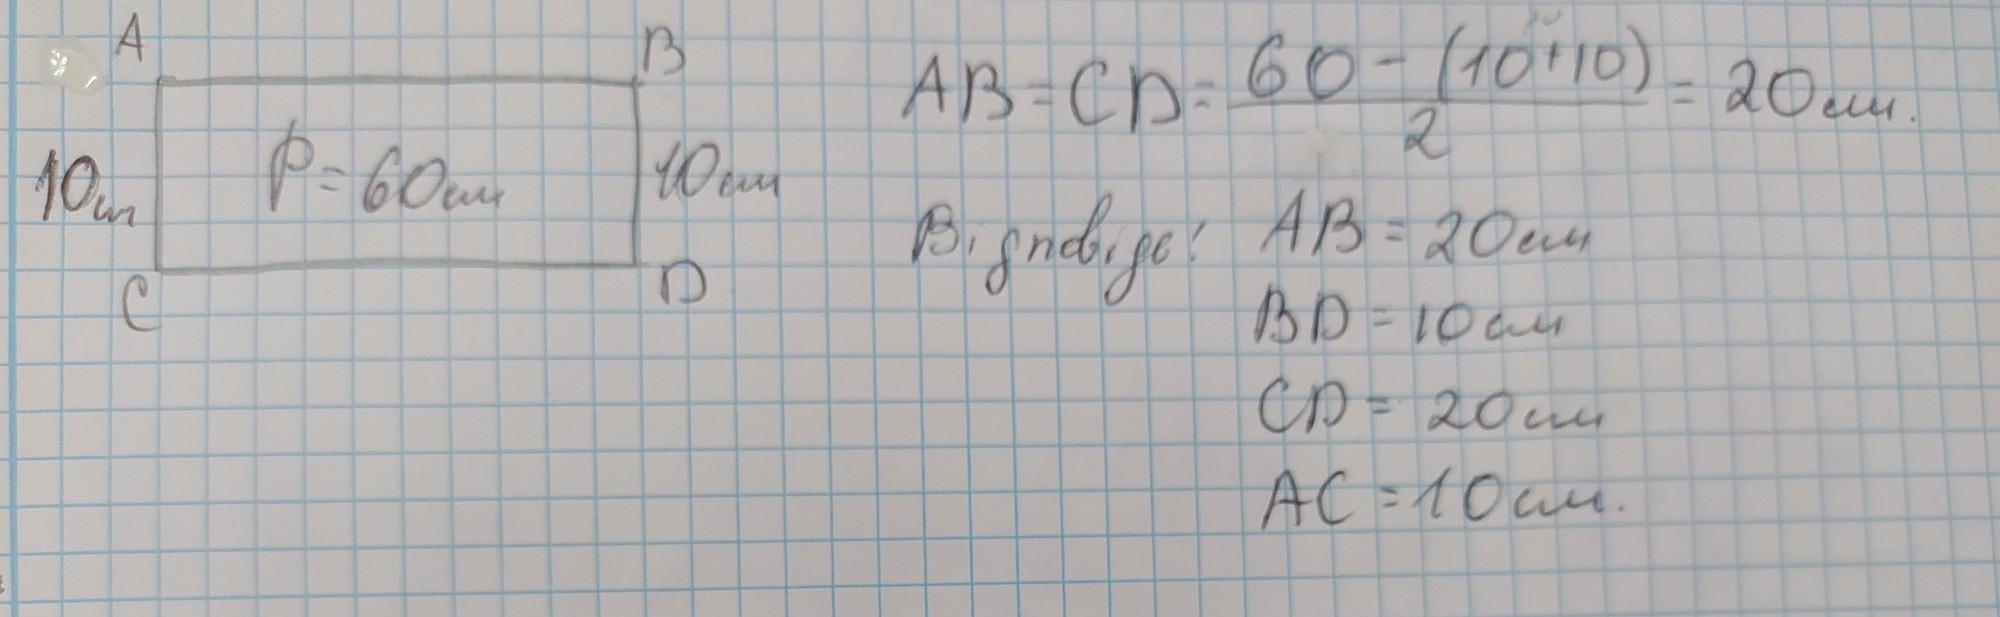 A
B
10см
P = 60см
10см
C
D
AB = CD = 60 - (10+10) / 2 = 20см.
Відповідь: AB = 20см
BD = 10см
CD = 20см
AC = 10см.